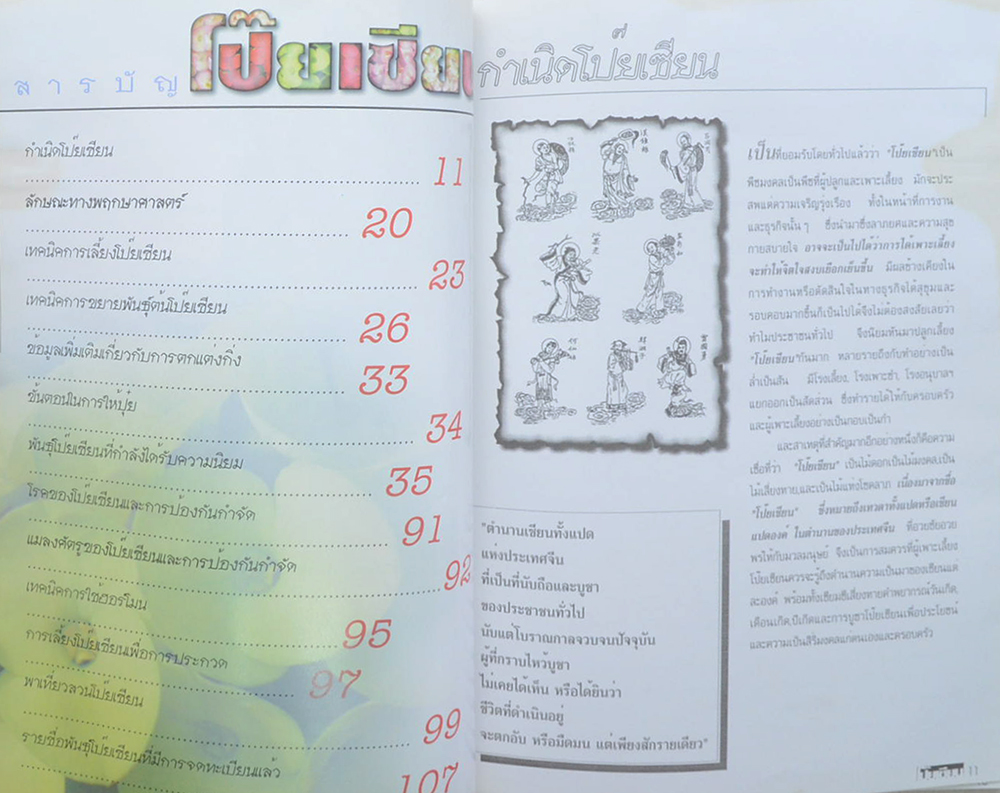 สารบัญ โป๊ยเซียน
กำเนิดโป๊ยเซียน
11
ลักษณะทางพฤกษาศาสตร์
20
เทคนิคการเลี้ยงโป๊ยเซียน
23
เทคนิคการขยายพันธุ์ต้นโป๊ยเซียน
26
ข้อมูลเพิ่มเติมเกี่ยวกับการตกแต่งกิ่ง
33
ขั้นตอนในการให้ปุ๋ย
34
พันธุ์โป๊ยเซียนที่กำลังได้รับความนิยม
35
โรคของโป๊ยเซียนและการป้องกันกำจัด
91
แมลงศัตรูของโป๊ยเซียนและการป้องกันกำจัด
92
เทคนิคการใช้ฮอร์โมน
95
การเลี้ยงโป๊ยเซียนเพื่อการประกวด
97
พาเที่ยวสวนโป๊ยเซียน
99
รายชื่อพันธุ์โป๊ยเซียนที่มีการจดทะเบียนแล้ว
107
กำเนิดโป๊ยเซียน
"ตำนานเซียนทั้งแปด
แห่งประเทศจีน
ที่เป็นที่นับถือและบูชา
ของประชาชนทั่วไป
นับแต่โบราณกาลจวบจนปัจจุบัน
ผู้ที่กราบไหว้บูชา
ไม่เคยได้เห็น หรือได้ยินว่า
ชีวิตที่ดำเนินอยู่
จะตกอับ หรือมืดมน แต่เพียงสักรายเดียว"
เป็นที่ยอมรับโดยทั่วไปแล้วว่า "โป๊ยเซียน"เป็น
พืชมงคลเป็นพืชที่ผู้ปลูกและเพาะเลี้ยง มักจะประ
สพแต่ความเจริญรุ่งเรือง ทั้งในหน้าที่การงาน
และธุรกิจนั้นๆ ซึ่งนำมาซึ่งลาภยศและความสุข
กายสบายใจ อาจจะเป็นไปได้ว่าการได้เพาะเลี้ยง
จะทำให้จิตใจสงบเยือกเย็นขึ้น มีผลข้างเคียงใน
การทำงานหรือตัดสินใจในทางธุรกิจได้สุขุมและ
รอบคอบมากขึ้นก็เป็นไปได้จึงไม่ต้องสงสัยเลยว่า
ทำไมประชาชนทั่วไป จึงนิยมหันมาปลูกเลี้ยง
"โป๊ยเซียน"กันมาก หลายรายถึงกับทำอย่างเป็น
ล่ำเป็นสัน มีโรงเลี้ยง, โรงเพาะชำ, โรงอนุบาลฯ
แยกออกเป็นสัดส่วน ซึ่งทำรายได้ให้กับครอบครัว
และผู้เพาะเลี้ยงอย่างเป็นกอบเป็นกำ
และสาเหตุที่สำคัญมากอีกอย่างหนึ่งก็คือความ
เชื่อที่ว่า "โป๊ยเซียน" เป็นไม้ดอกเป็นไม้มงคล,เป็น
ไม้เสี่ยงทาย,และเป็นไม้แห่งโชคลาภ เนื่องมาจากชื่อ
"โป๊ยเซียน" ซึ่งหมายถึงเทวดาทั้งแปดหรือเซียน
แปดองค์ ในตำนานของประเทศจีน ที่อวยชัยอวย
พรให้กับมวลมนุษย์ จึงเป็นการสมควรที่ผู้เพาะเลี้ยง
โป๊ยเซียนควรจะรู้ถึงตำนานความเป็นมาของเซียนแต่
ละองค์ พร้อมทั้งเซียมซีเสี่ยงทายคำพยากรณ์วันเกิด,
เดือนเกิด,ปีเกิดและการบูชาโป๊ยเซียนเพื่อประโยชน์
และความเป็นสิริมงคลแก่ตนเองและครอบครัว
11